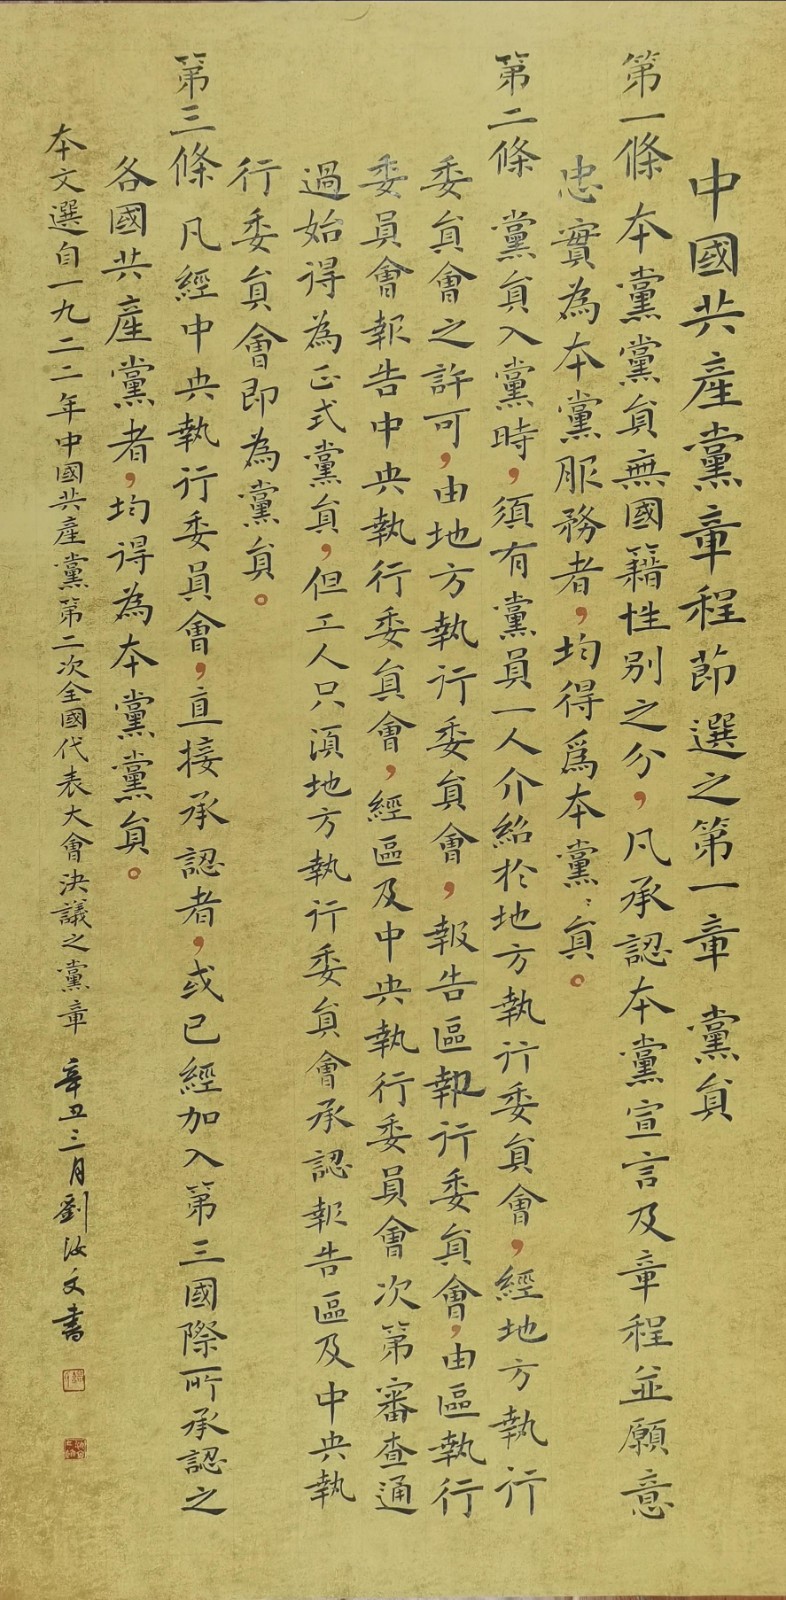 中國共產黨章程節選之第一章 黨員
第一條 本黨黨員無國籍性別之分，凡承認本黨宣言及章程並願意
忠實為本黨服務者，均得爲本黨〻員。
第二條 黨員入黨時，須有黨員一人介紹於地方執行委員會，經地方執行
委員會之許可，由地方執行委員會，報告區執行委員會，由區執行
委員會報告中央執行委員會，經區及中央執行委員會次第審查通
過始得為正式黨員，但工人只須地方執行委員會承認報告區及中央執
行委員會即為黨員。
第三條 凡經中央執行委員會，直接承認者，或已經加入第三國際所承認之
各國共產黨者，均得為本黨黨員。
本文選自一九二二年中國共產黨第二次全國代表大會決議之黨章 辛丑三月劉汝文書